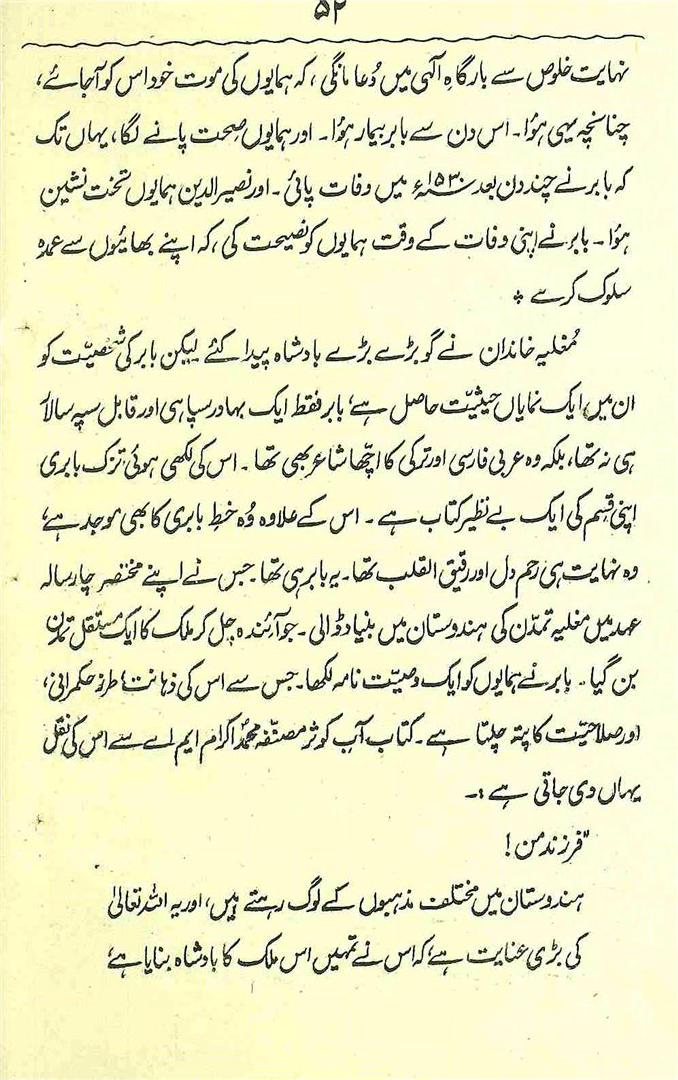 ۵۲
نہایت خلوص سے بارگاہِ الٰہی میں دُعا مانگی، کہ ہمایوں کی موت خود اس کو آ جائے،
چنانچہ یہی ہؤا۔ اس دن سے بابر بیمار ہؤا۔ اور ہمایوں صحت پانے لگا، یہاں تک
کہ بابر نے چند دن بعد ۱۵۳۰ء میں وفات پائی۔ اور نصیر الدین ہمایوں تخت نشین
ہؤا۔ بابر نے اپنی وفات کے وقت ہمایوں کو نصیحت کی، کہ اپنے بھائیوں سے عمدہ
سلوک کرے ٭
مُغلیہ خاندان نے گو بڑے بڑے بادشاہ پیدا کئے لیکن بابر کی شخصیّت کو
ان میں ایک نمایاں حیثیّت حاصل ہے، بابر فقط ایک بہادر سپاہی اور قابل سپہ سالار
ہی نہ تھا، بلکہ وہ عربی فارسی اور ترکی کا اچّھا شاعر بھی تھا۔ اس کی لکھی ہوئی تزک بابری
اپنی قسم کی ایک بے نظیر کتاب ہے۔ اس کے علاوہ وُہ خطِ بابری کا بھی موجد ہے،
وہ نہایت ہی رحم دل اور رقیق القلب تھا۔ یہ بابر ہی تھا۔ جس نے اپنے مختصر چار سالہ
عہد میں مغلیہ تمدّن کی ہندوستان میں بنیاد ڈالی۔ جو آئندہ چل کر ملک کا ایک مستقل تمدّن
بن گیا۔ بابر نے ہمایوں کو ایک وصیّت نامہ لکھا۔ جس سے اس کی ذہانت، طرزِ حکمرانی،
اور صلاحیّت کا پتہ چلتا ہے۔ کتاب آبِ کوثر مصنّفہ محمّد اکرام ایم اے سے اس کی نقل
یہاں دی جاتی ہے :۔
"فرزندِ من!
ہندوستان میں مختلف مذہبوں کے لوگ رہتے ہیں، اور یہ اللہ تعالیٰ
کی بڑی عنایت ہے، کہ اس نے تمہیں اس ملک کا بادشاہ بنایا ہے،